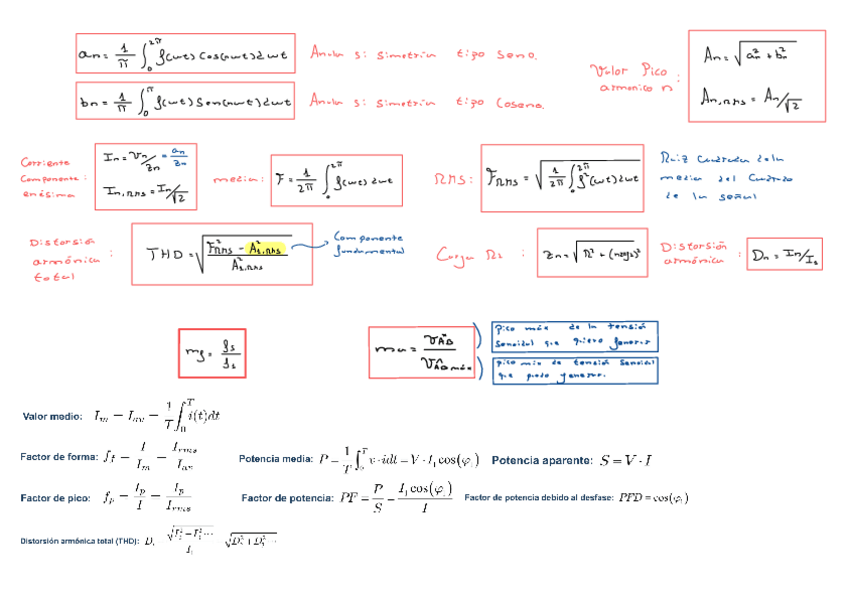 an = 1/π ∫₀^2π f(wt) Cos(nwt) dwt Anula si simetría tipo Seno.
bn = 1/π ∫₀^2π f(wt) Sen(nwt) dwt Anula si simetría tipo Coseno.
Valor Pico armonico n : An = √(an² + bn²)
An,RMS = An/√2
Corriente Componente enésima : In = Vn/Zn = an/Zn
In,RMS = In/√2
media: F = 1/2π ∫₀^2π f(wt) dwt
RMS: FRMS = √(1/2π ∫₀^2π f²(wt) dwt)
Raiz Cuadrada de la
media del Cuadrado
de la señal
Distorsión armónica total : THD = √((F²RMS - A²1,RMS)/A²1,RMS)
Componente fundamental
Carga RL : Zn = √(R² + (nwL)²)
Distorsión armónica : Dn = In/I1
ma = VAO/VAO máx
Pico máx de la tensión
senoidal que quiero generar
pico máx de tensión senoidal
que puedo generar.
Valor medio: I_m = I_av = 1/T ∫₀^T i(t)dt
Factor de forma: f_f = I/I_m = I_rms/I_av
Potencia media: P = 1/T ∫₀^T v·idt = V·I₁cos(φ₁)
Potencia aparente: S = V·I
Factor de pico: f_p = I_p/I = I_p/I_rms
Factor de potencia: PF = P/S = I₁cos(φ₁)/I
Factor de potencia debido al desfase: PFD = cos(φ₁)
Distorsión armónica total (THD):